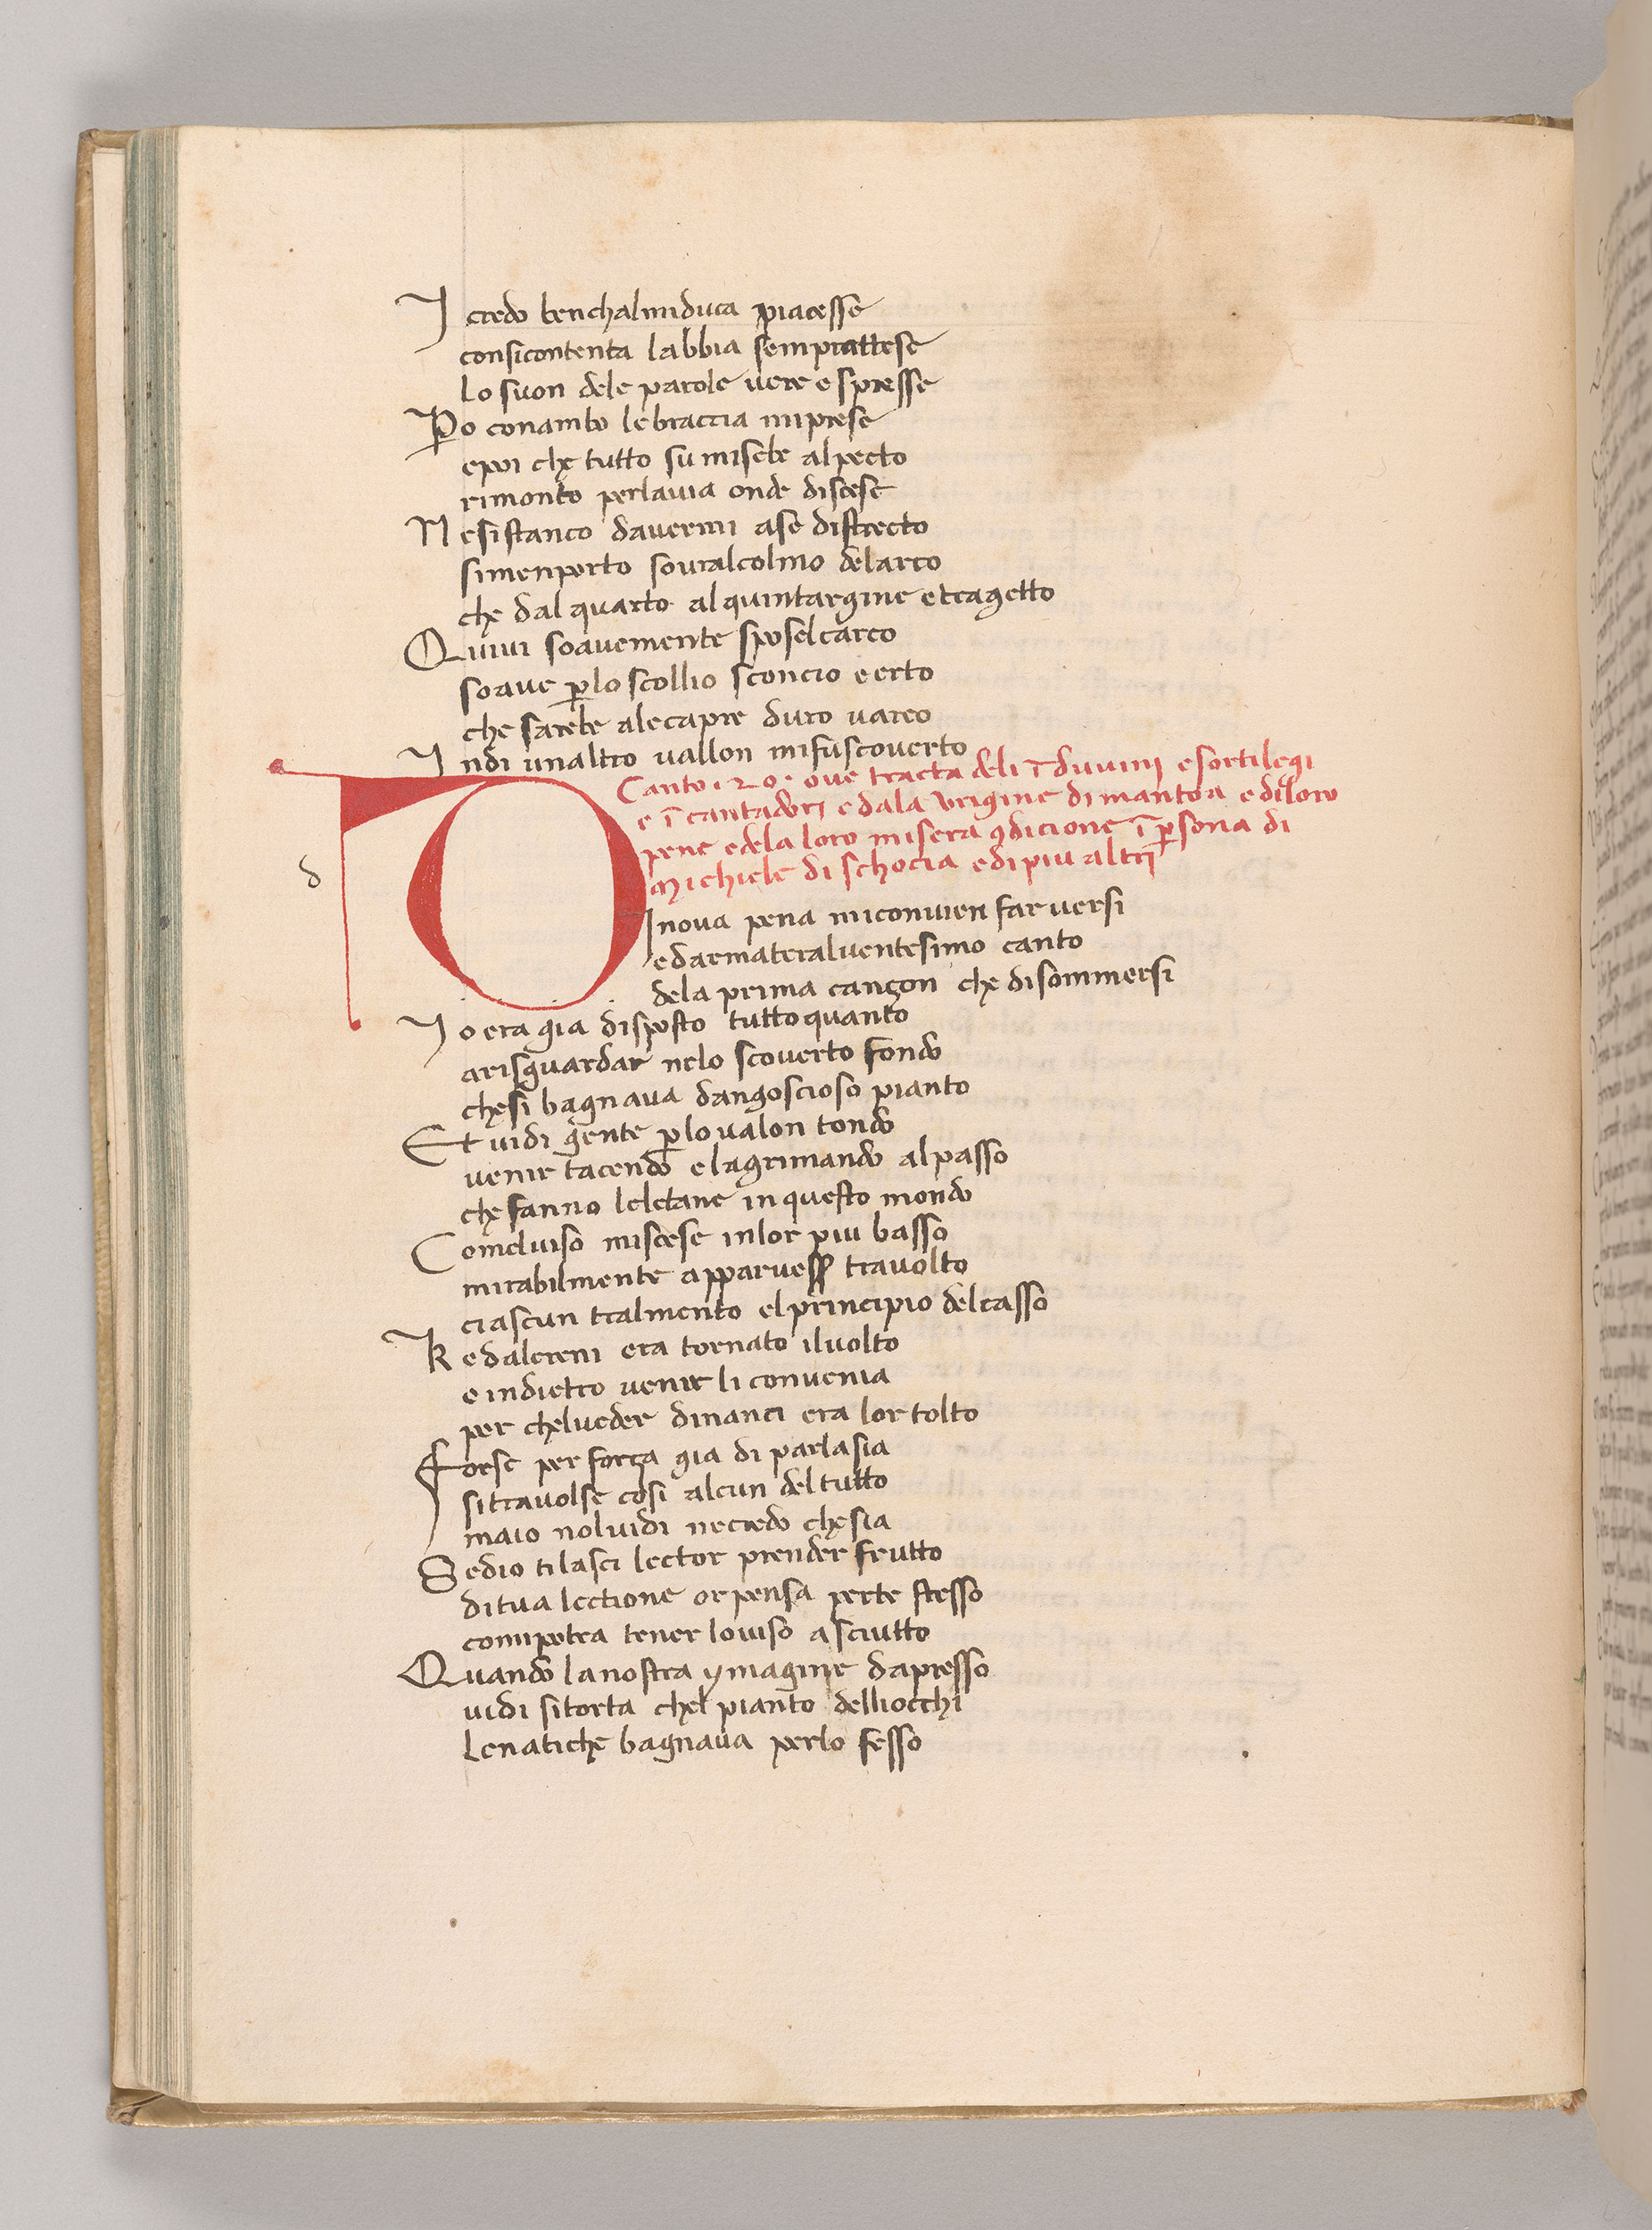 I credo benchalmiduca piacesse
consicontenta labbia sempreattese
Lo suon dele parole vere espresse
Po conambo lebraccia miprese
epoi che tutto su misebe alpecto
rimonto perlavia onde discese
Nesistanco davermi ase distrecto
simenporto sovralcolmo delarco
che dal quarto alquintargine etragetto
Quivi soavemente sposelcarco
soave perlo scollio sconcio eerto
che sarebe alecapre duro varco
Indi unaltro vallon mifuscoverto
Canto .20. ove tracta deli īduvinj esortilegi
e īcantadorj edala origine dimantoa edeloro
pene edela loro misera 9dicione ī psona di
Michiele di schocia edipiu altrj
d
DI nova pena miconvien far versi
edarmateralventesimo canto
dela prima cançon che disommersi
Io era gia disposto tuttoquanto
arisguardar nelo scoverto fondo
chesi bagnava dangoscioso pianto
Et vidi gente plovalon tondo
venir tacendo elagrimando alpasso
che fanno leletane inquesto mondo
Comelviso miscese inlor piu basso
mirabilmente apparvess travolto
ciascun tralmento elprincipio delcasso
Kedalereni era tornato ilvolto
e indietro venir li convenia
per chelveder dinanci era lor tolto
Forse per força gia di parlasia
sitravolse cosi alcun deltutto
maio nolvidi necredo chesia
Sedio tilasci lector prender frutto
ditua lectione orpensa perte stesso
comipotea tener loviso asciutto
Quando lanostra ymagine dapresso
vidi sitorta chel pianto delliocchi
Lenatiche bagnava perlo fesso